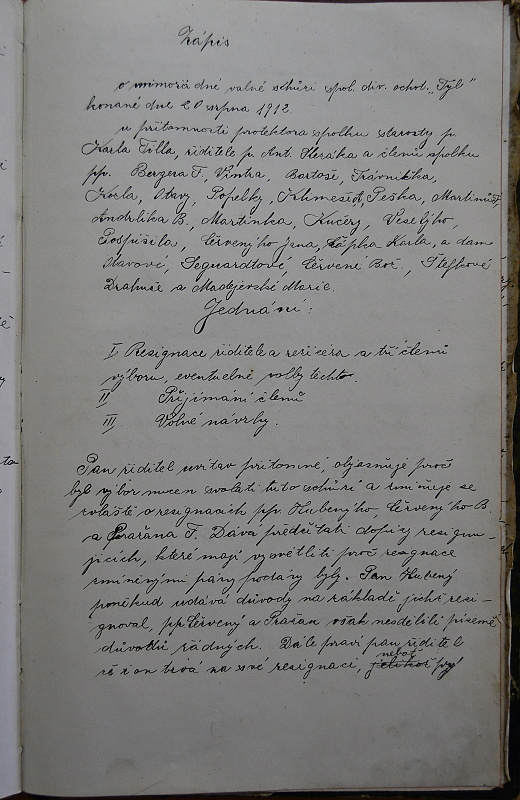 Zápis
o mimořádné valné schůzi spol. div. ochot. „Tyl"
konané dne 20 srpna 1912.
u přítomnosti protektora spolku starosty p.
Karla Tilla, ředitele p. Ant. Hezáka a členů spolku
pp. Berzera F., Vintra, Bartoše, Trávníčka,
Karla, Otavy, Popelky, Peška, Martinů F.,
Andrlíka B., Martínka, Kučery, Veselýho,
Pospíšila, Červenýho Jana, Čápka Karla, a dam
Otavové, Seguardtové, Červené Bož., Štefkové
Drahuše a Madejevské Marie.
Jednání:
I Resignace ředitele a režiséra a tří členů
výboru, eventuelné volby těchto.
II Přijímání členů
III Volné návrhy.
Pan ředitel uvítav přítomné, objasňuje proč
byl výbor nucen svolati tuto schůzi a zmiňuje se
zvláště o resignacích pp. Hubenýho, Červenýho B.
a Pražana F. Dává předčítati dopisy resignu-
jících, které mají vysvětliti proč resignace
zmíněnými pány podány byly. Pan Hubený
poněkud udává důvody na základě jichž resi-
gnoval, pp. Červený a Pražan však nesdělili písemě
důvodů řádných. Dále praví pan ředitel
že i on trvá na své resignaci, jelikož neboť prý